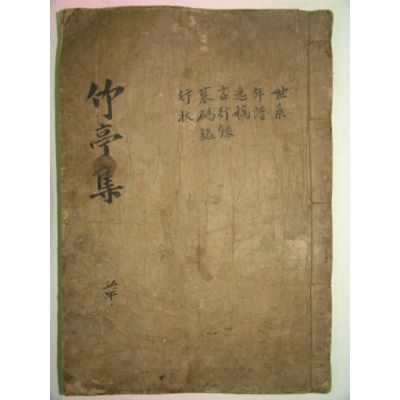 世系
年譜
逸稿
言行錄
墓碣銘
行狀
竹亭集